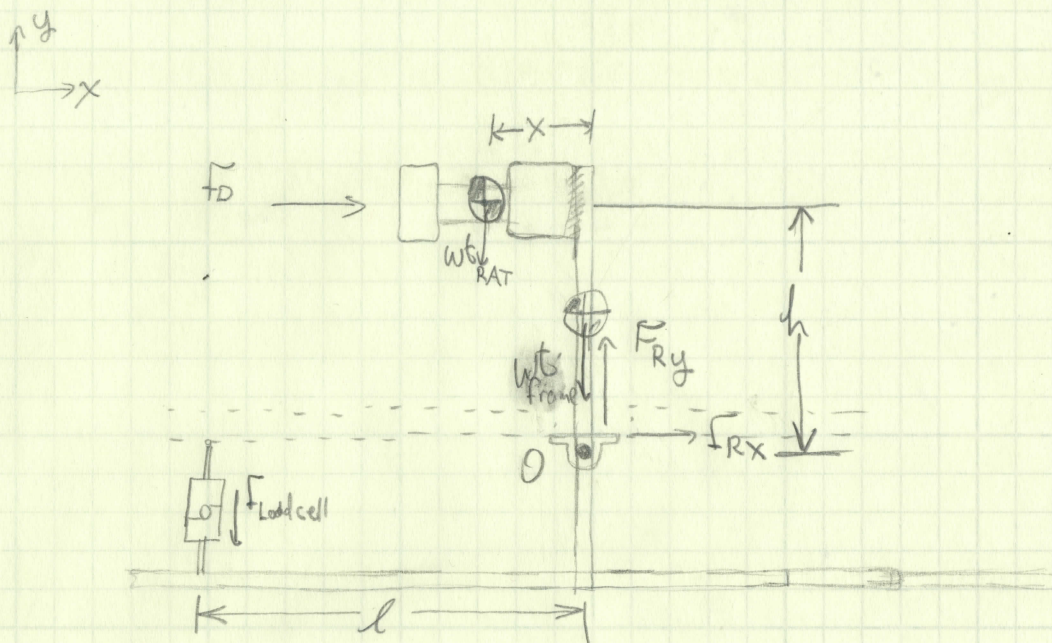 y
x
x
F_D
wt_RAT
h
F_Ry
wt_frame
F_Rx
O
F_Loadcell
l